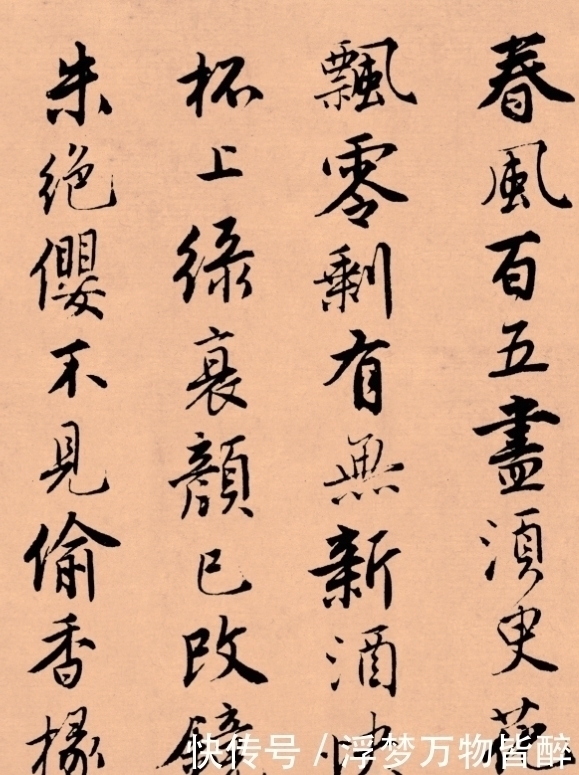 春風百五盡須臾花
飄零剩有無新酒快
杯上綠衰顏已改鏡
朱絕纓不見偷香掾
快传号 / 浮梦万物皆醉